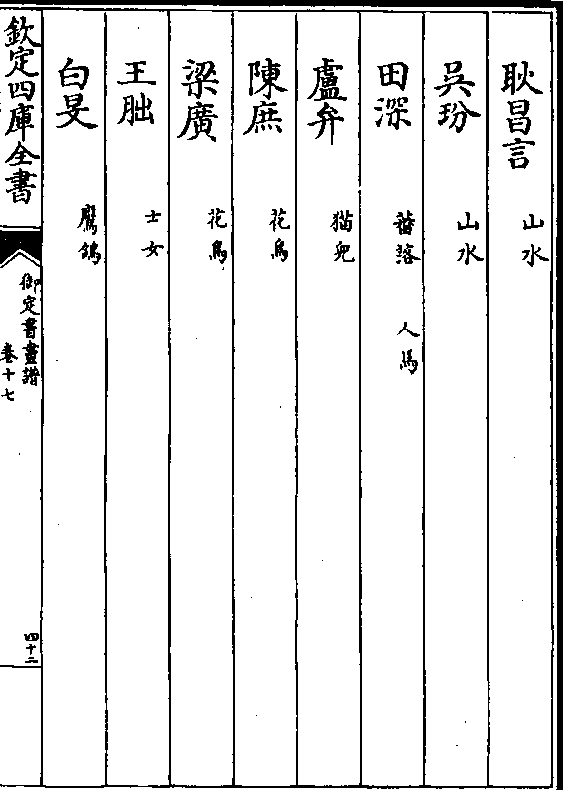 耿昌言 山水
吳玢 山水
田深 蕃落 人馬
盧弁 猫兒
陳庶 花鳥
梁廣 花鳥
王朏 士女
白旻 鷹鴿
欽定四庫全書
御定書畫譜
卷十七
四十二